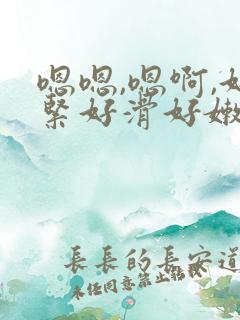 嗯嗯,嗯啊,好
紧好滑好嫩
長長的長安道
未经同意禁止转载